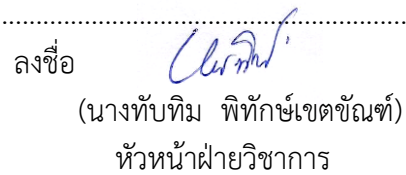 ................................................................
ลงชื่อ
(นางทับทิม พิทักษ์เขตขัณฑ์)
หัวหน้าฝ่ายวิชาการ